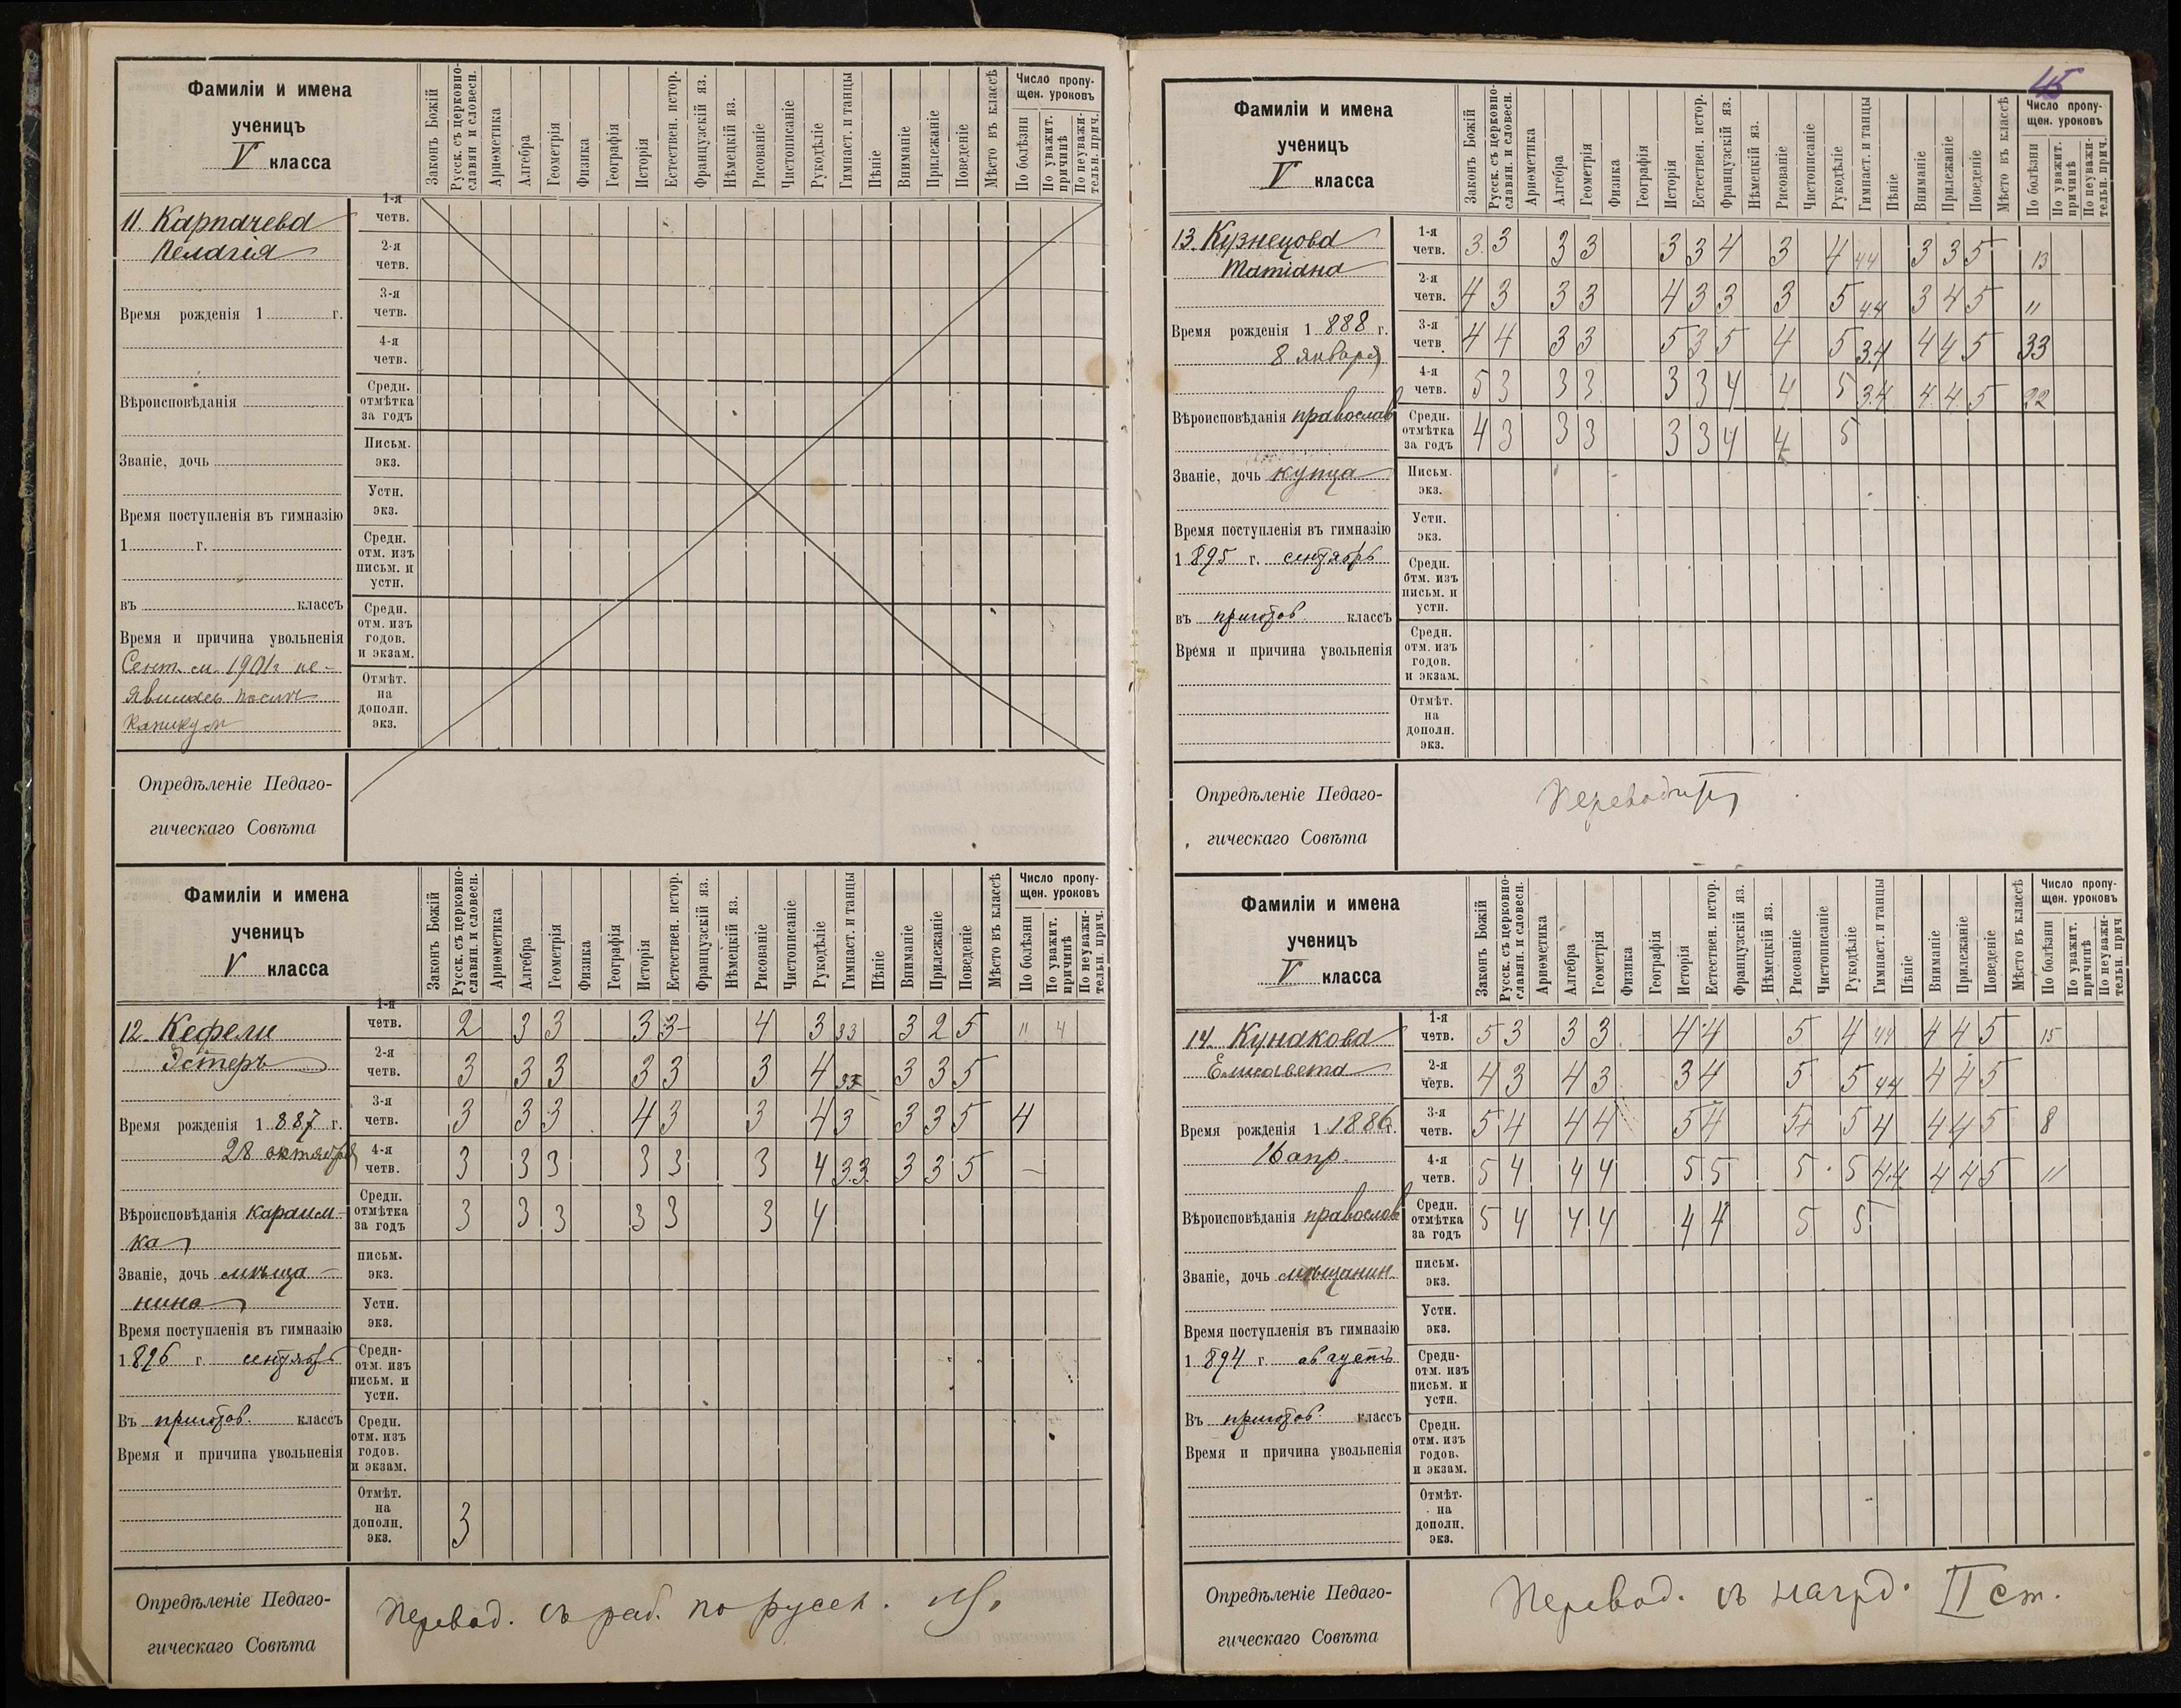 Фамиліи и имена
ученицъ
V класса
Законъ Божій
Русск. съ церковно-
славян. и словесн.
Ариѳметика
Алгебра
Геометрія
Физика
Географія
Исторія
Естествен. истор.
Французскій яз.
Нѣмецкій яз.
Рисованіе
Чистописаніе
Рукодѣліе
Гимнаст. и танцы
Пѣніе
Вниманіе
Прилежаніе
Поведеніе
Мѣсто въ классѣ
Число пропу-
щен. уроковъ
По болѣзни
По уважит.
причинѣ
По неуважи-
тельн. прич.
11. Карпачева
Пелагія
Время рожденія 1 г.
Вѣроисповѣданія
Званіе, дочь
Время поступленія въ гимназію
1 г.
въ классъ
Время и причина увольненія
Сент. м. 1901 г не-
явилась послѣ
каникул
1-я
четв.
2-я
четв.
3-я
четв.
4-я
четв.
Средн.
отмѣтка
за годъ
Письм.
экз.
Устн.
экз.
Средн.
отм. изъ
письм. и
устн.
Средн.
отм. изъ
годов.
и экзам.
Отмѣт.
на
дополн.
экз.
Опредѣленіе Педаго-
гическаго Совѣта
Фамиліи и имена
ученицъ
V класса
Законъ Божій
Русск. съ церковно-
славян. и словесн.
Ариѳметика
Алгебра
Геометрія
Физика
Географія
Исторія
Естествен. истор.
Французскій яз.
Нѣмецкій яз.
Рисованіе
Чистописаніе
Рукодѣліе
Гимнаст. и танцы
Пѣніе
Вниманіе
Прилежаніе
Поведеніе
Мѣсто въ классѣ
Число пропу-
щен. уроковъ
По болѣзни
По уважит.
причинѣ
По неуважи-
тельн. прич.
12. Кефели
Эстеръ
Время рожденія 1 887 г.
28 октября
Вѣроисповѣданія караим-
ка
Званіе, дочь мѣща-
нина
Время поступленія въ гимназію
1 896 г сентябрь
Въ приготов. классъ
Время и причина увольненія
1-я
четв. 2 3 3 3 3 4 3 33 3 2 5 11 4
2-я
четв. 3 3 3 3 3 3 4 33 3 3 5
3-я
четв. 3 3 3 4 3 3 4 3 3 3 5 4
4-я
четв. 3 3 3 3 3 3 4 3.3. 3 3 5 —
Средн.
отмѣтка
за годъ 3 3 3 3 3 3 4
письм.
экз.
Устн.
экз.
Средн-
отм. изъ
письм. и
устн.
Средн.
отм. изъ
годов.
и экзам.
Отмѣт.
на
дополн.
экз. 3
Опредѣленіе Педаго-
гическаго Совѣта
Перевод. съ раб. по русск.
45
Фамиліи и имена
ученицъ
V класса
Законъ Божій
Русск. съ церковно-
славян. и словесн.
Ариѳметика
Алгебра
Геометрія
Физика
Географія
Исторія
Естествен. истор.
Французскій яз.
Нѣмецкій яз.
Рисованіе
Чистописаніе
Рукодѣліе
Гимнаст. и танцы
Пѣніе
Вниманіе
Прилежаніе
Поведеніе
Мѣсто въ классѣ
Число пропу-
щен. уроковъ
По болѣзни
По уважит.
причинѣ
По неуважи-
тельн. прич.
13. Кузнецова
Татіана
Время рожденія 1 888 г.
8 января
Вѣроисповѣданія православ
Званіе, дочь купца
Время поступленія въ гимназію
1 895 г. сентябрь
въ приготов. классъ
Время и причина увольненія
1-я
четв. 3 3 3 3 3 3 4 3 4 44 3 3 5 13
2-я
четв. 4 3 3 3 4 3 3 3 5 44 3 4 5 11
3-я
четв. 4 4 3 3 5 3 5 4 5 3.4 4 4 5 33
4-я
четв. 5 3 3 3 3 3 4 4 5 3.4 4 4 5 22
Средн.
отмѣтка
за годъ 4 3 3 3 3 3 4 4 5
Письм.
экз.
Устн.
экз.
Средн.
отм. изъ
письм. и
устн.
Средн.
отм. изъ
годов.
и экзам.
Отмѣт.
на
дополн.
экз.
Опредѣленіе Педаго-
гическаго Совѣта
Переводится
Фамиліи и имена
ученицъ
V класса
Законъ Божій
Русск. съ церковно-
славян. и словесн.
Ариѳметика
Алгебра
Геометрія
Физика
Географія
Исторія
Естествен. истор.
Французскій яз.
Нѣмецкій яз.
Рисованіе
Чистописаніе
Рукодѣліе
Гимнаст. и танцы
Пѣніе
Вниманіе
Прилежаніе
Поведеніе
Мѣсто въ классѣ
Число пропу-
щен. уроковъ
По болѣзни
По уважит.
причинѣ
По неуважи-
тельн. прич
14. Кунакова
Елисавета
Время рожденія 1 1886 г.
16 апр.
Вѣроисповѣданія православ
Званіе, дочь мѣщанин.
Время поступленія въ гимназію
1 894 г августъ
Въ приготов. классъ
Время и причина увольненія
1-я
четв. 5 3 3 3 4 4 5 4 44 4 4 5 15
2-я
четв. 4 3 4 3 3 4 5 5 44 4 4 5
3-я
четв. 5 4 4 4 5 4 5 5 4 4 4 5 8
4-я
четв. 5 4 4 4 5 5 5 5 4.4 4 4 5 11
Средн.
отмѣтка
за годъ 5 4 4 4 4 4 5 5
письм.
экз.
Устн.
экз.
Средн-
отм. изъ
письм. и
устн.
Средн.
отм. изъ
годов.
и экзам.
Отмѣт.
на
дополн.
экз.
Опредѣленіе Педаго-
гическаго Совѣта
Перевод. съ нагрд. II ст.